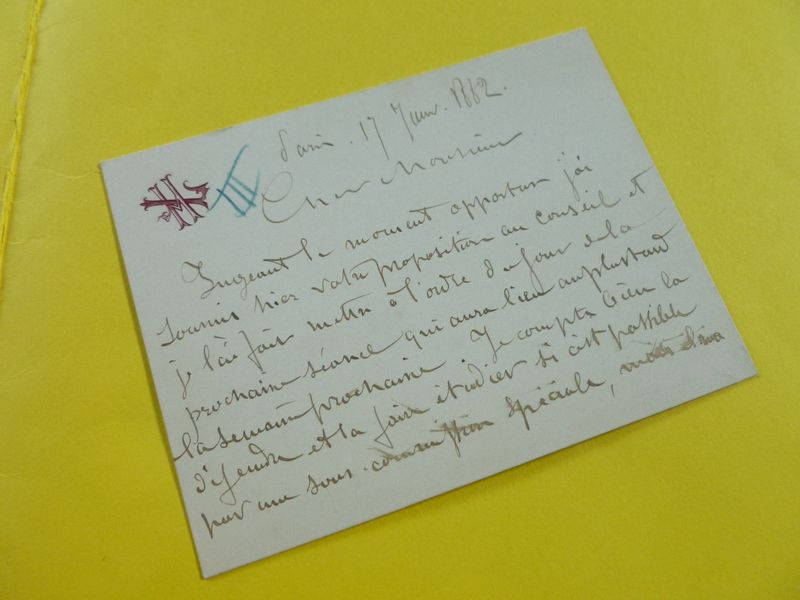 Paris. 17 Janv. 1882.
III
Cher Monsieur
Jugeant le moment opportun j'ai
soumis hier votre proposition au conseil et
je l'ai fait mettre à l'ordre du jour de la
prochaine séance qui aura lieu au plus tard
la semaine prochaine. Je compte bien la
défendre et la faire étudier si c'est possible
par une sous-commission spéciale,